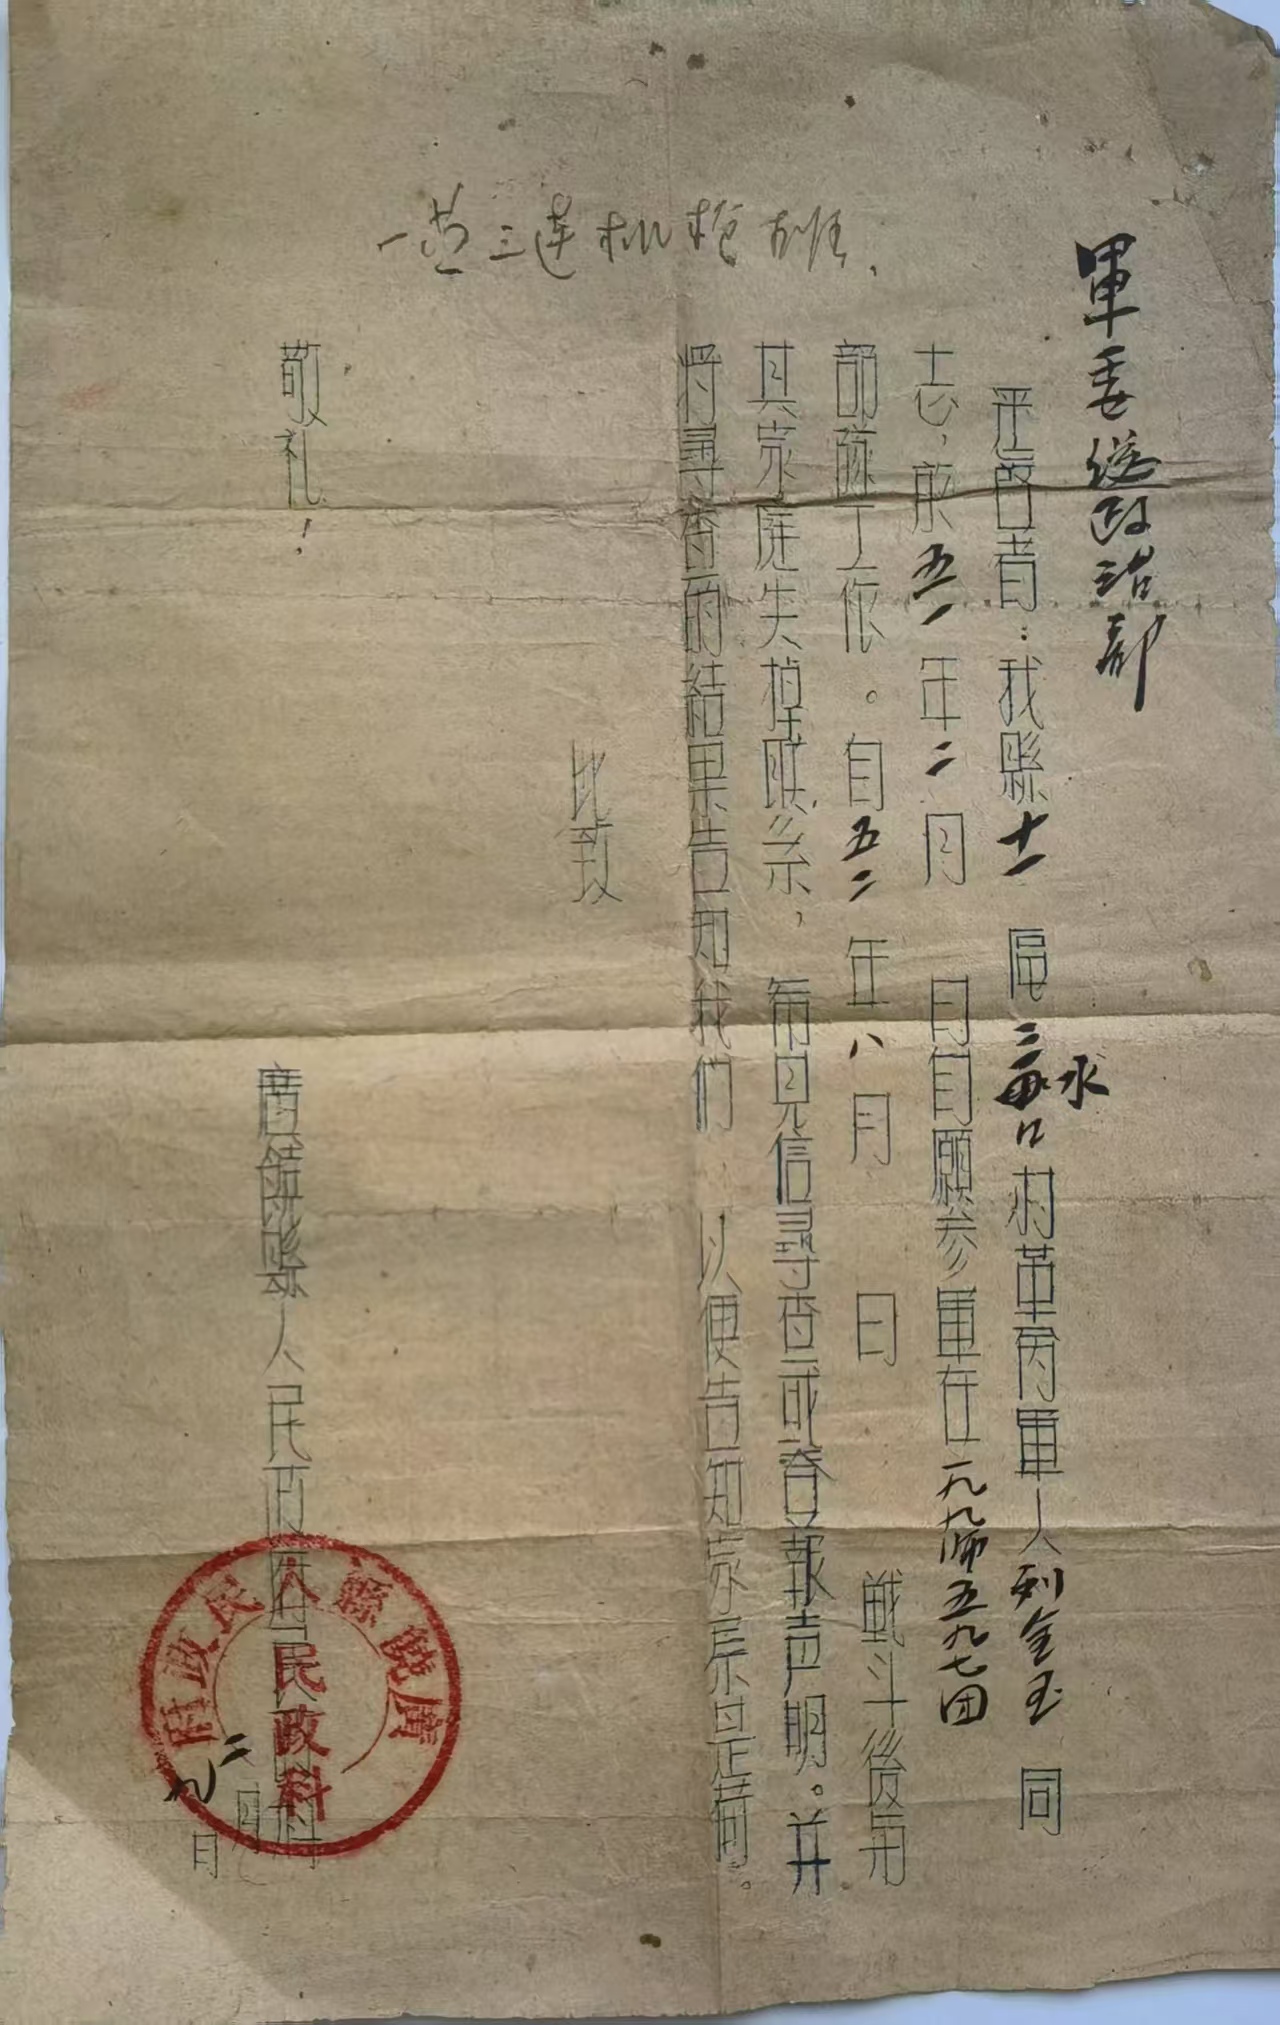 一营三連机枪班.
軍委総政治部
逕啓者：我縣十一區三水口村革命軍人刘金玉同
志，於五一年二月 日自願参軍在一九九师五九七团
部隊工作。自五二年八月 日 戰斗後與
其家庭失掉联系，希見信尋查或登報声明。并
将尋查的結果告知我們 以便告知家属是荷。
此致
敬礼！
廣饒縣人民政府民政科
二月
九日
廣饒縣人民政府
民政科